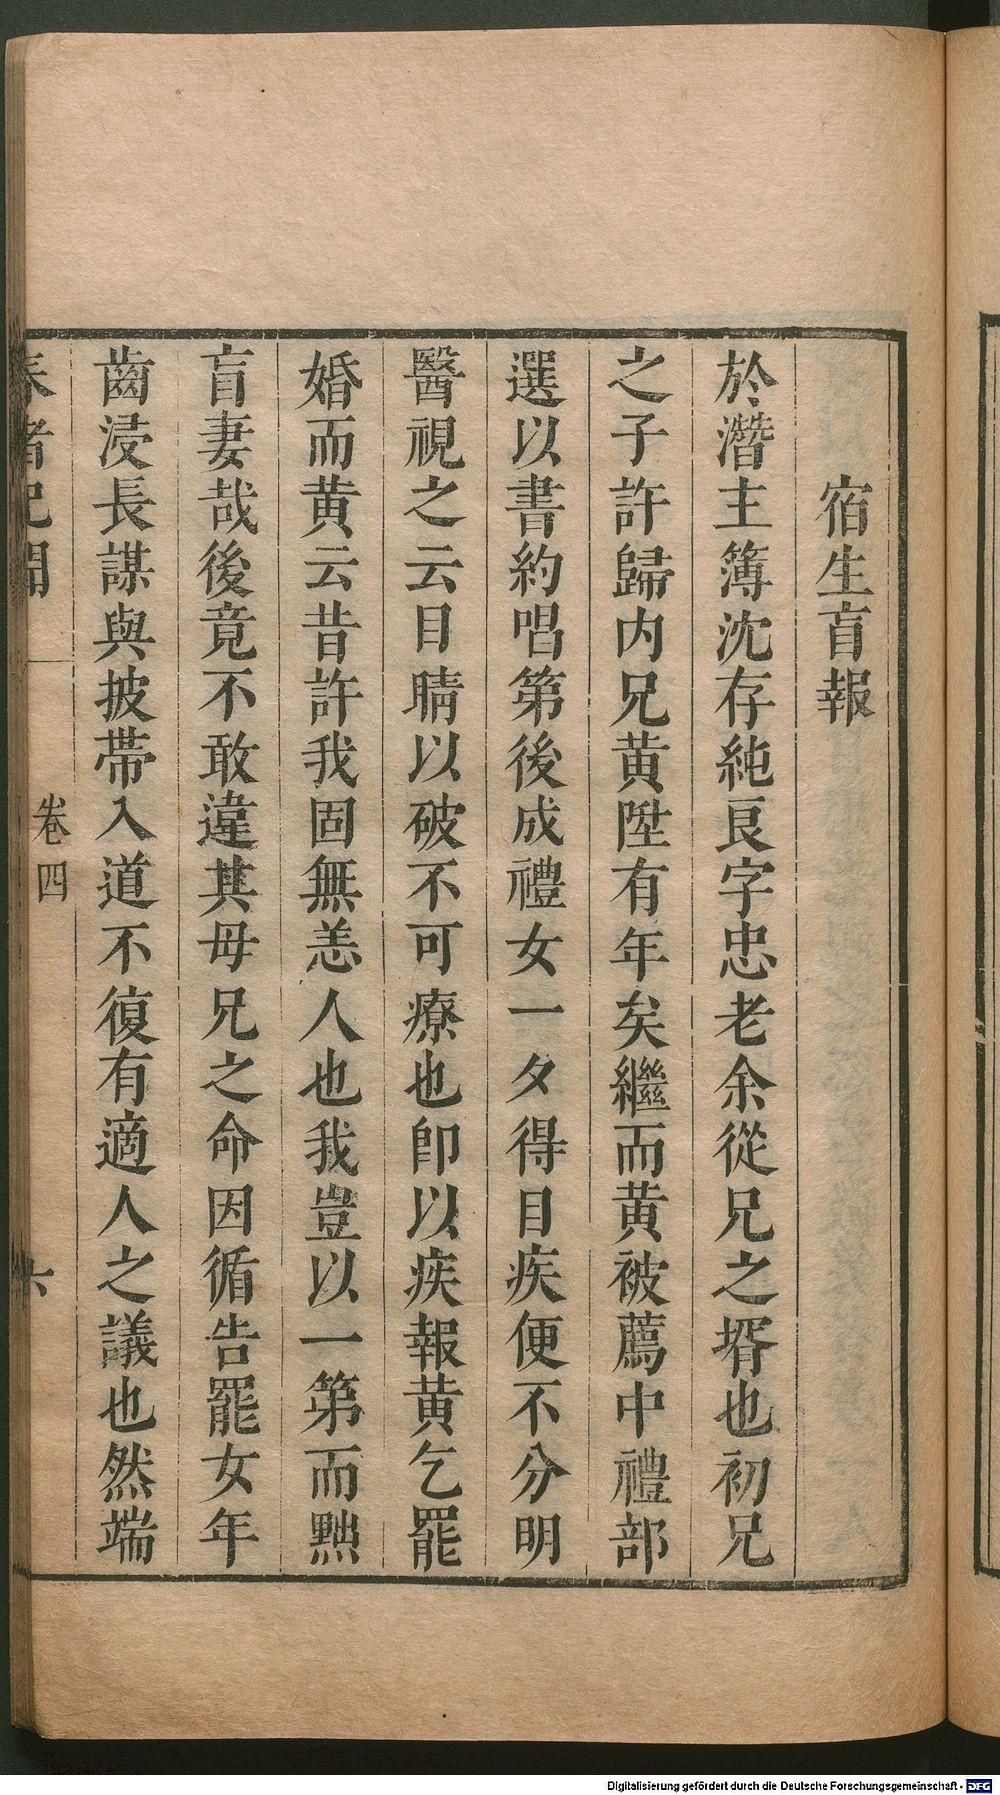 宿生盲報
於潛主簿沈存純良字忠老余從兄之壻也初兄
之子許歸内兄黄陞有年矣繼而黄被薦中禮部
選以書約唱第後成禮女一夕得目疾便不分明
醫視之云目睛以破不可療也卽以疾報黄乞罷
婚而黄云昔許我固無恙人也我豈以一第而黙
盲妻哉後竟不敢違其母兄之命因循告罷女年
齒浸長謀與披帶入道不復有適人之議也然端
春渚紀聞
卷四
六
Digitalisierung gefördert durch die Deutsche Forschungsgemeinschaft - DFG